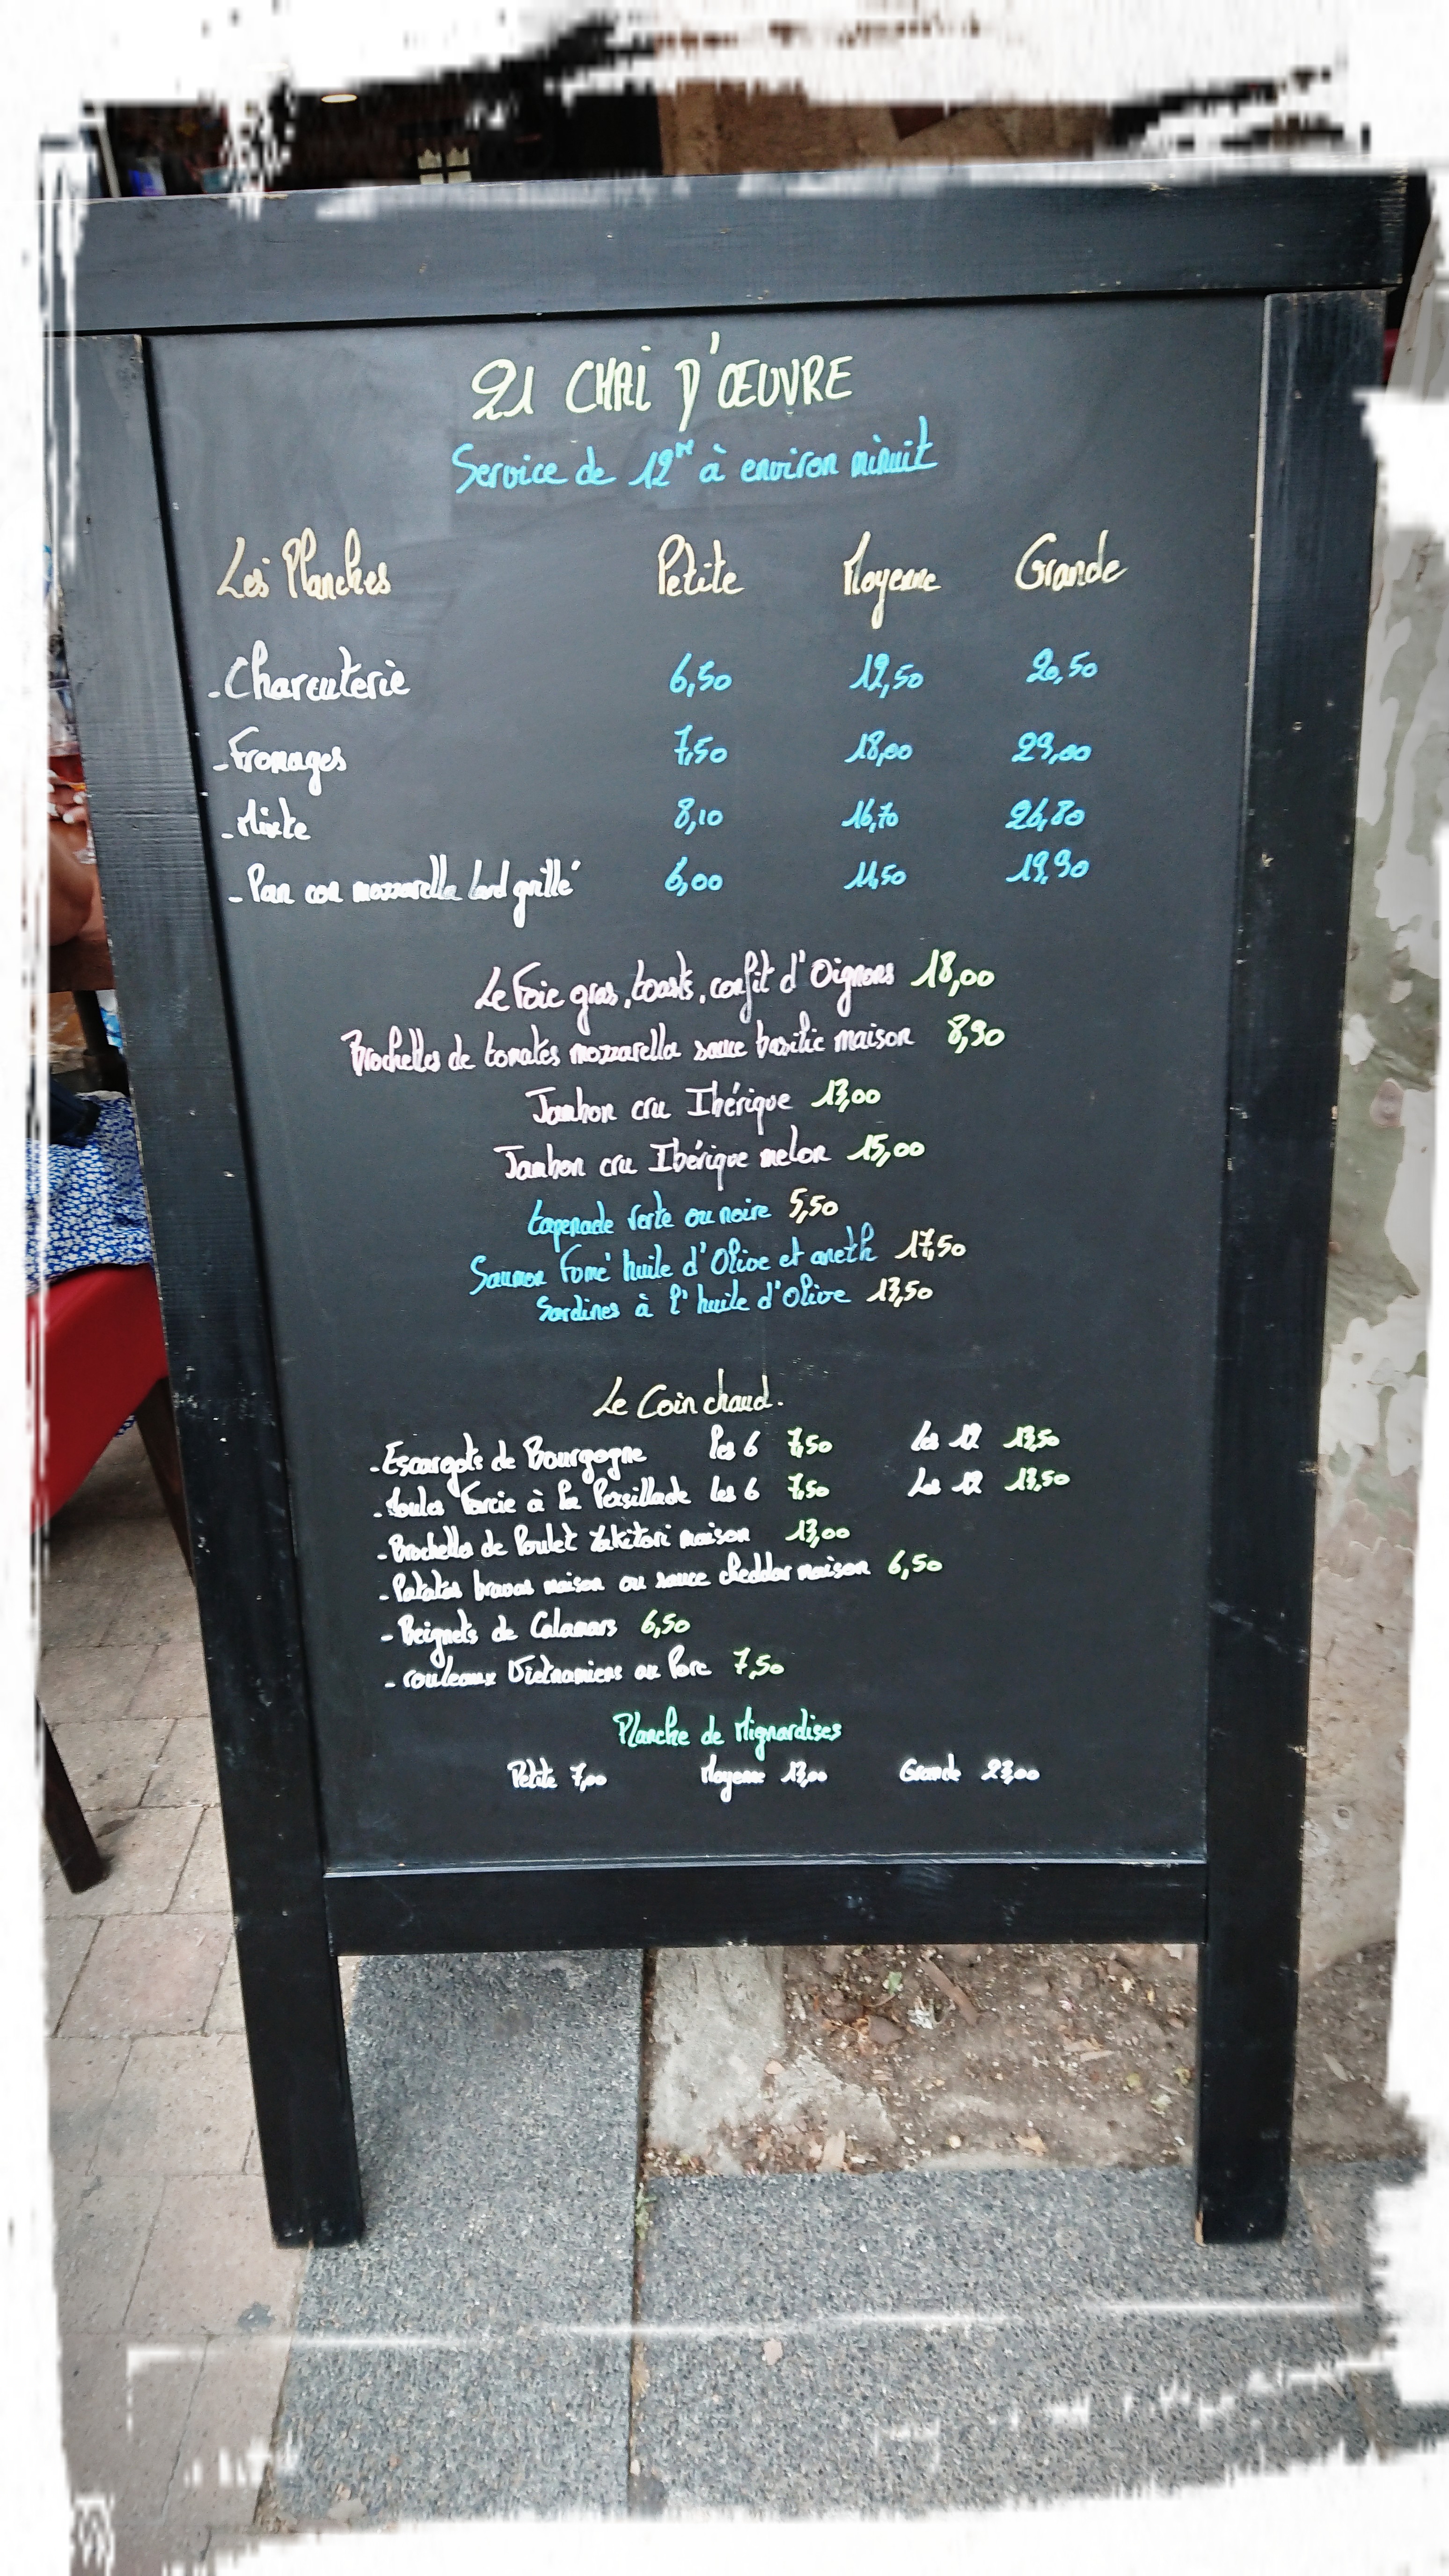 21 CHAI D'ŒUVRE
Service de 12H à environ minuit
Les Planches Petite Moyenne Grande
- Charcuterie 6,50 12,50 20,50
- Fromages 7,50 18,00 29,00
- Mixte 8,10 16,70 26,80
- Pan con mozzarella lard grillé 6,00 11,50 19,90
Le Foie gras, toasts, confit d'Oignons 18,00
Brochettes de tomates mozzarella sauce basilic maison 8,90
Jambon cru Ibérique 13,00
Jambon cru Ibérique melon 15,00
tapenade verte ou noire 5,50
Saumon Fumé huile d'Olive et aneth 17,50
Sardines à l'huile d'Olive 13,50
Le Coin chaud.
- Escargots de Bourgogne les 6 7,50 Les 12 13,50
- Moules Farcie à la Persillade les 6 7,50 Les 12 13,50
- Brochettes de Poulet Yakitori maison 13,00
- Patatas bravas maison ou sauce cheddar maison 6,50
- Beignets de Calamars 6,50
- rouleaux Vietnamiens au Porc 7,50
Planche de Mignardises
Petite 7,00 Moyenne 13,00 Grande 23,00